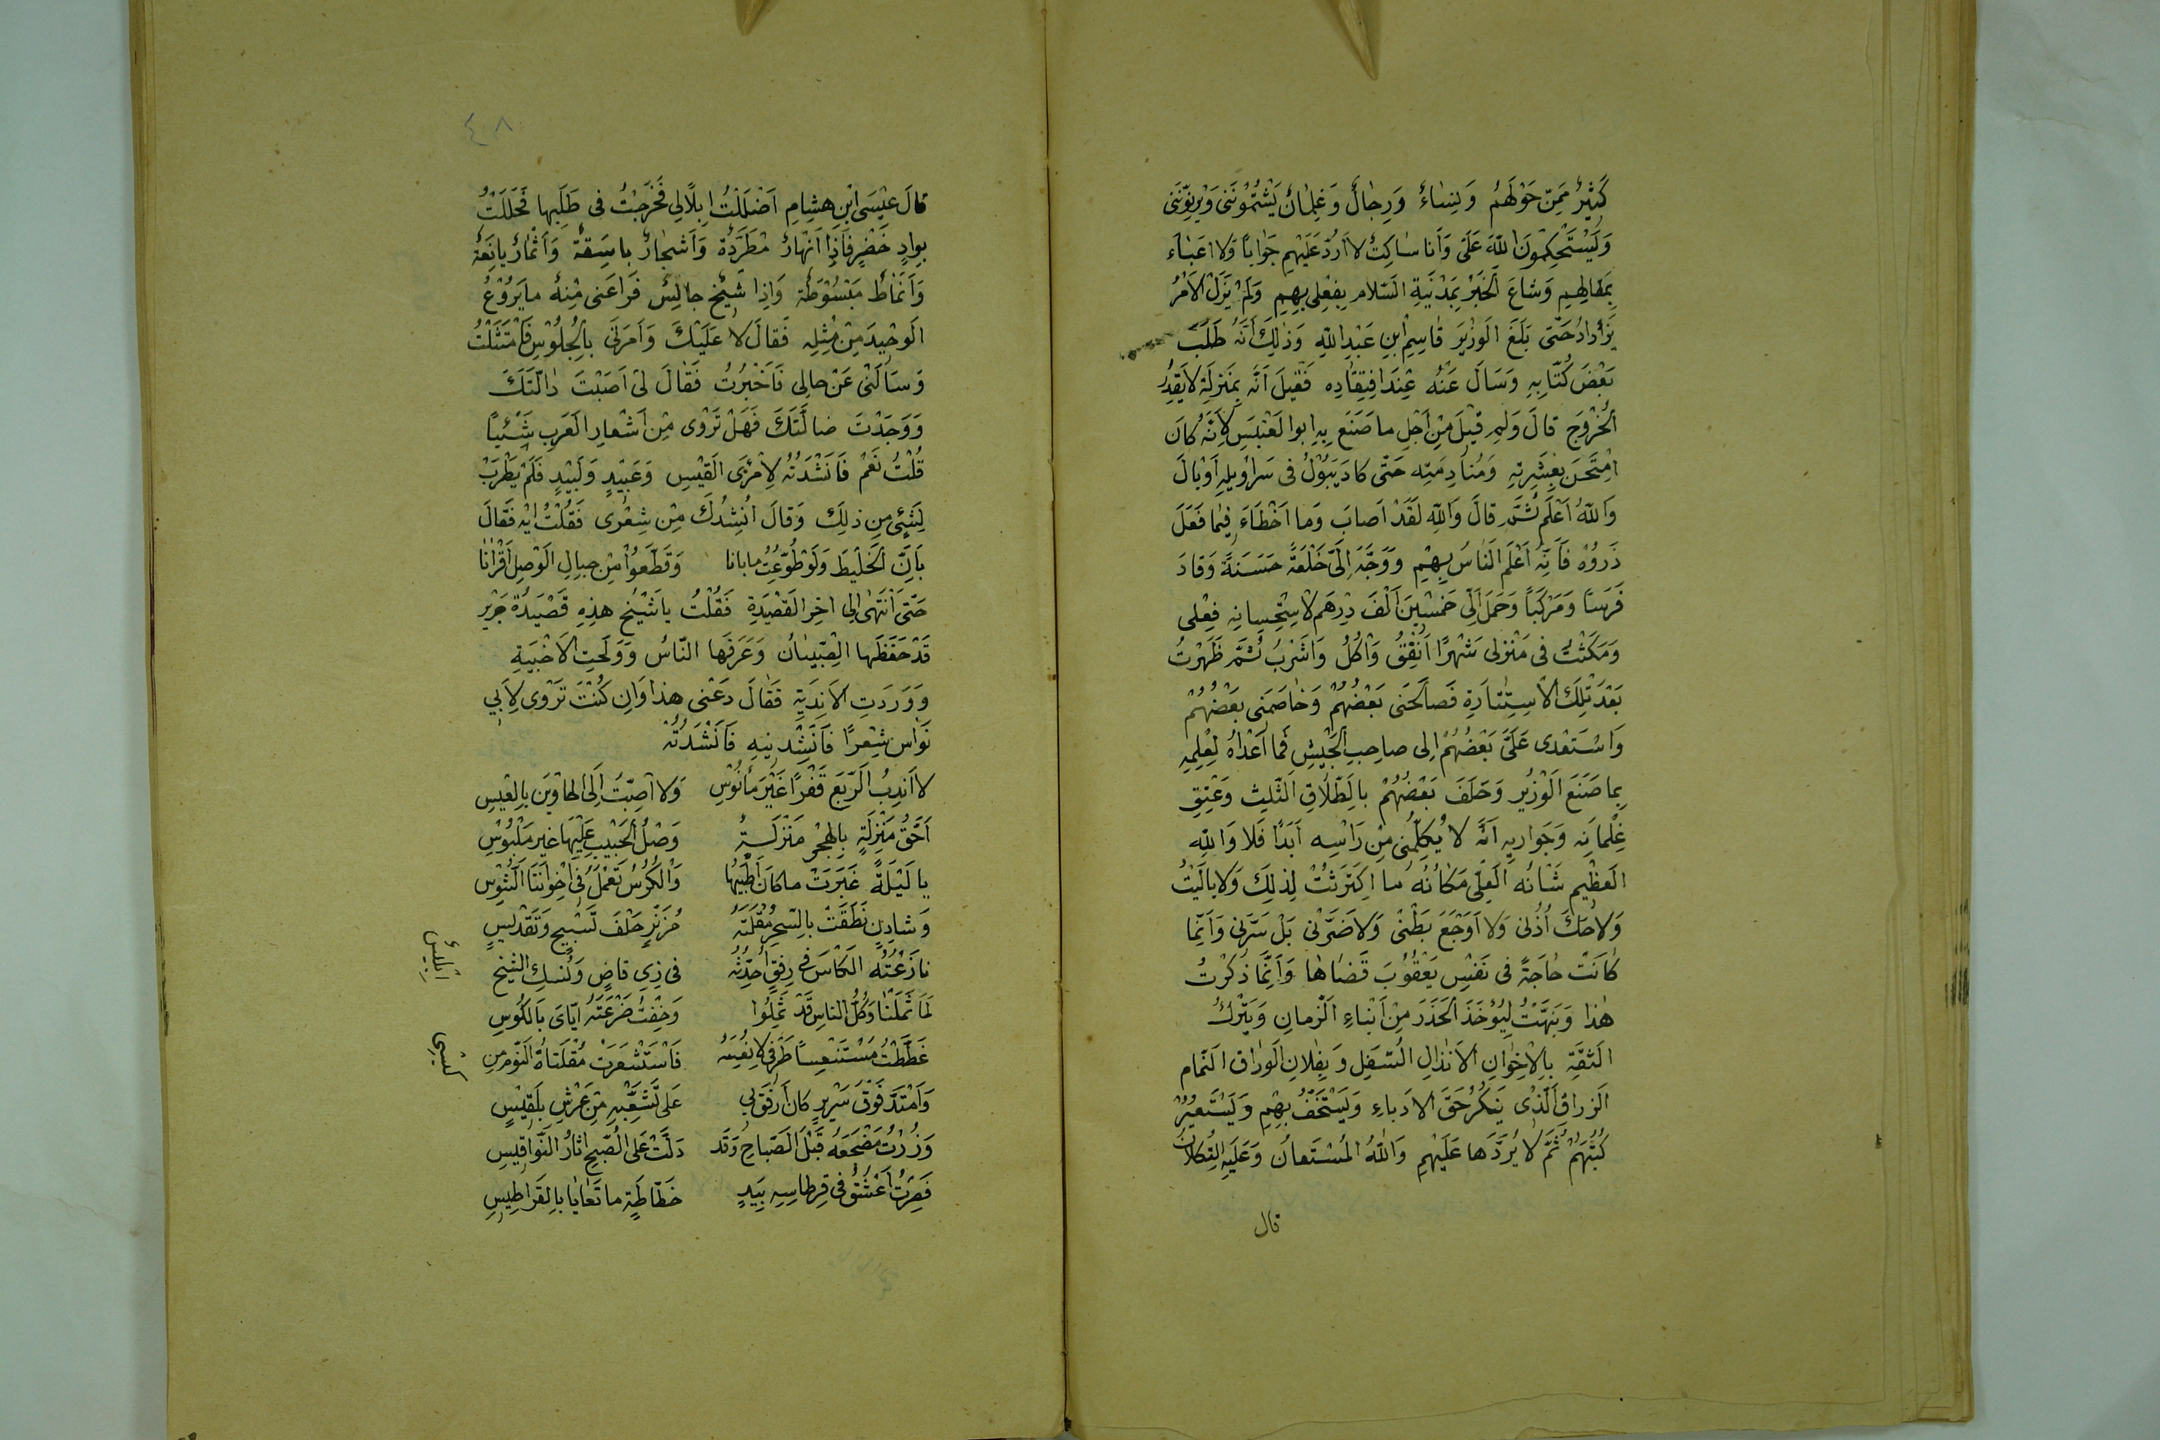 كَثِيْرٌ مِمَّنْ حَوْلَهُمْ وَنِسَاءٌ وَرِجَالٌ وَغِلْمَانٌ يَشْتُمُونَنِى وَيُزَنُّونَنِى
وَيَسْتَحْكِمُونَ اللهَ عَلَىَّ وَأَنَا سَاكِتٌ لا أَرُدُّ عَلَيْهِمْ جَوَابًا وَلا اعبَاء
بِمَقَالِهِمْ وَشَاعَ الْخَبَرُ بِمَدْنِيَةِ السَّلام بِفِعْلِى بِهِمْ وَلَمْ يَزَلِ الأَمْرُ
يَزْدَادُ حَتّى بَلَغَ الوَزِيرَ قَاسِمِ بنِ عَبْدِ اللهِ وَذٰلِكَ أَنَّهُ طَلَبَ
بَعْضَ كُتّابِهِ وَسَالَ عَنْهُ عِنْدَ افتِقَادِه فَقِيلَ اَنَّه بِمَنزِلَةٍ لا يَقْدِرُ
الْخُرُوْجَ قالَ وَلِمِ قِيْلَ مِنْ اَجْلِ ما صَنَعَ بِهِ ابوالعَنْبَسِ لأَنَّه كانَ
امْتَحَنَ بِعِشْرتِهِ وَمُنَادِمَتِه حَتّى كادَ يَبُوْلُ فى سَرَاوِيلِهِ اَوْبَالَ
وَاللهُ اَعْلَمُ ثُمَّ قالَ وَاللهِ لَقَدْ اَصابَ وَما اَخْطَاءَ فِيما فَعَلَ
ذَرُوْهُ فَاَنّه اَعْلَمِ النَّاسُ بِهِمْ وَوَجَّهَ اِلَىَّ خَلْعَةً حَسَنَةً وَقادَ
فَرَسًا وَمَرْكَبًا وَحَمَلَ اِلَىَّ خَمْسِينَ اَلْفَ دِرْهَمٍ لاسْتِحْسانِهِ فِعْلِى
وَمَكَثْتُ فى مَنْزِلى شَهْرًا اُنْفِقُ وَآكُلُ وَاَشْرَبُ ثُمَّ ظَهَرْتُ
بَعْدَ تِلْكَ الاسْتِتَارَةِ فَصالَحَنى بَعْضُهُمْ وَخَاصَمَنى بَعْضُهُمْ
وَاسْتَعْدى عَلَىَّ بَعْضُهُمْ اِلى صاحِبِ الجَيْشِ فَما اَعْداهُ لِعِلْمِهِ
بِما صَنَعَ الْوَزِيْر وَحَلَفَ بَعْضُهُمْ بالطَّلَاقِ الثَّلِثِ وَعِتْقِ
غِلْمانِه وَجَوارِيهِ اَنَّه لا يُكَلِّمُنى مِنْ رَاسِه اَبَدًا فَلا وَاللهِ
العَظِيمِ شَانُه العَلِىِّ مَكَانُهُ ما اكتَرَثْتُ لِذلِكَ وَلا بالَيْتُ
وَلا حَكَّ اُذُنى وَلا اَوْجَعَ بَطْنىْ وَلا ضَرَّنى بَلْ سَرَّنى وَاَنَّما
كَانَتْ حَاجَةً فى نَفْسِ يَعْقُوْبَ قَضَاهَا وَاَنَّما ذَكَرْتُ
هٰذَا وَنَبَهَّتُ لِيُؤْخَذَ الْحَذَرَ مِنْ اَبْنَاءِ الزَّمانِ وَيَتْرُك
الثِّقَةَ بِالاِخْوَانِ الأنْذَالِ السَّفِلِ وَبِفُلانِ الوَرّاق النَّمام
الزراقِ الَّذِى يَنكُرُ حَقَّ الاُدَباءِ وَيَسْتَخِفُّ بِهِمْ وَيَسْتَعِيْرُ
كُتُبَهُمْ ثُمَّ لا يُرَدُّهَا عَلَيْهِمِ وَاللهُ الْمُسْتَعانُ وَعَلَيْهِ التُّكلانُ
قال
٤٠٨
قالَ عِيْسَى ابْنِ هِشامِ اَضْلَلْتُ اِبِلًا لِى فَخَرَجْتُ فى طَلَبِها فَحَلَلْتُ
بِوادٍ خَضْرٍ فَاِذا اَنْهارٌ مُطَرَّدَةٌ وَاَشجارٌ باسِقَةٌ وَاَثْمارٌ يانِعَةٌ
وَاَنْمَاطٌ مَبْسُوْطَةٌ وَاِذا شَيْخٌ جالِسٌ فَرَاعَنى مِنْهُ مايَرُوْعُ
الوحِيْدَ مِنْ مِثْلِه فَقالَ لا عَلَيْكَ وَاَمَرَنى بِالْجُلُوْسِ فَامْتَثَلْتُ
وَسَاَلَنْى عَنْ حالى فَاَخْبَرْتُ فَقَالَ لىْ اَصَبْتَ دالَّتَكَ
وَوَجَدْتَ ضالَّتَكَ فَهَلْ تَرْوى مِنْ اَشْعارِ العَرَبِ شَيْئًا
قُلْتُ نَعَمْ فَاَنْشَدْتُه لاِمْرِىء القَيْسِ وَعَبِيْدٍ وَلَبِيْدٍ فَلَمْ يَطْرَبْ
لِشَئٍ مِن ذلِكَ وَقالَ اُنْشِدُكَ مِنْ شِعْرى فَقُلْتُ اِيْهِ فَقَالَ
بَانَ الْخَلِيطَ وَلَوْ طُوّعْتُ مابانا وَقَطَّعُوا مِنْ حِبالِ الوَصْلِ اَقْرَانا
حَتّى اَنْتَهٰى اِلى اخِرِ القَصْيَدَةِ فَقُلْتُ ياشَيْخُ هذِهِ قَصْيَدَةُ جَرِير
قَدْ حَفَظَها الصِّبْيانُ وَعَرَفَها النّاسُ وَوَلَجَتِ الاَخْبَيَةِ
وَوَرَدَتِ الاَنْدِيَةِ فَقَالَ دَعْنى هذا وَاِن كُنْتَ تَرْوى لاَبي
نَوَاس شِعرًا فَاَنْشِدنِيهِ فَاَنْشَدْتُهْ
لا اَندِبُ الرَّبَعَ قَفْرًا غَيْرَ مَأنُوْسِ وَلا اَصِبُّ اِلَى الحادِيْنَ بِالعِيْسِ
اَحَقُّ مَنْزِلَةٍ بِالهَجْرِ مَنْزَلَةٌ وَصْلُ الحَبِيْبِ عَلَيْهَا غيرمَلْبُوْسِ
يا لَيْلَةً غَبَرَتْ ماكانَ اَطْيَبُها وَالْكُوْسُ تَعْمَلُ فى اِخْوَانِنَا الشُّوْسِ
وَشادِنٍ نَطَقَتْ بِالسِّحرِ مُقْلَتَه مُزَنَّرٍ حَلْفَ تَسْبِيحٍ وَتَقْدِيسٍ
نازَعْتُه الكَاسَ فى رِفقٍ اُحَدِّثُه فى ذِي قاضٍ وَنُسكِ الشيخ
اِبْلِيْسُ
لَمّا ثَمَلْنا وَكُلُّ النّاسِ قَدْ ثَمِلُوا وَخِفْتُ صَرْعَتَه اِيّاىَ بِالكُوْسِ
غَطَّطْتُ مُسْتَنْعِسًا طَرْفى لاُنْعِسَهُ فَاسْتَشْعَرَتْ مُقْلَتاهُ النَّوْمَ مِنْ
كيْسى
وَامْتَدَّ فَوْقَ سَرِيْرٍ كانَ اَرْفَقَ بي عَلَى تَشَعُّبِهِ مِنْ عَرْشِ بَلْقِيْسِ
وَزُرْتُ مَضْجَعَهُ قَبْلَ الصَّباحِ وَقَد دَلَّتْ عَلى الصُّبْحِ اثارُ النَّوَاقِيسِ
فَصِرْتُ اَعْشَقُ فى قِرطاسِهِ بِيَدٍ خَطّاطَةٍ ما تَعَايا بِالقَراطِيسِ